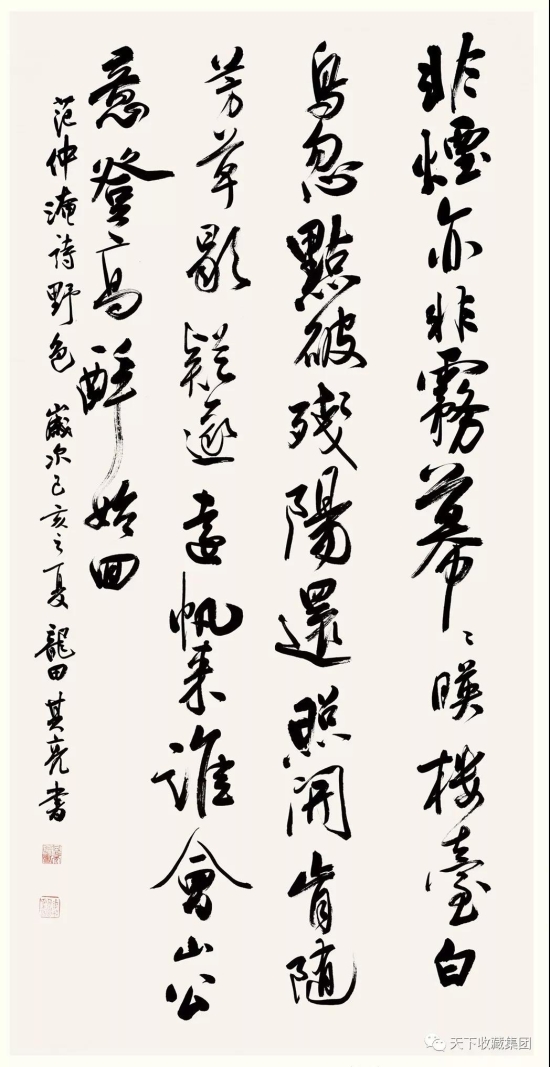 非煙亦非霧幕〻暎樓臺白
鳥忽點破殘陽還照開肯隨
芳草歇疑逐遠帆來誰會山公
意登高醉始回
范仲淹詩野色 歲次己亥之夏 龍田其亮書
天下收藏集团